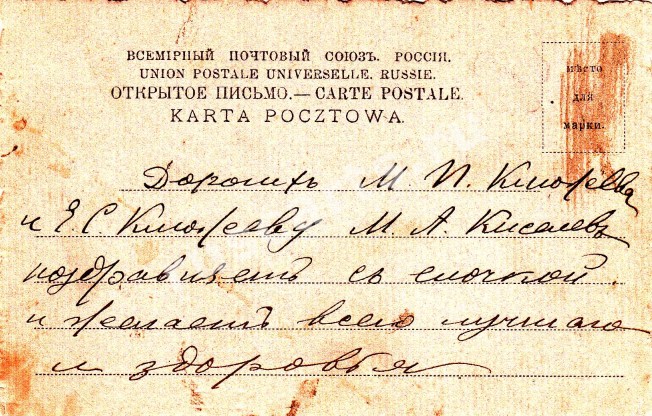 ВСЕМІРНЫЙ ПОЧТОВЫЙ СОЮЗЪ. РОССІЯ.
UNION POSTALE UNIVERSELLE. RUSSIE.
ОТКРЫТОЕ ПИСЬМО.—CARTE POSTALE.
KARTA POCZTOWA.
МѢСТО
ДЛЯ
МАРКИ.
Дорогихъ М. П.
и Е. С. М. А. Киселевъ
поздравляетъ съ елочкой
и желаетъ всего лучшаго
и здоровья